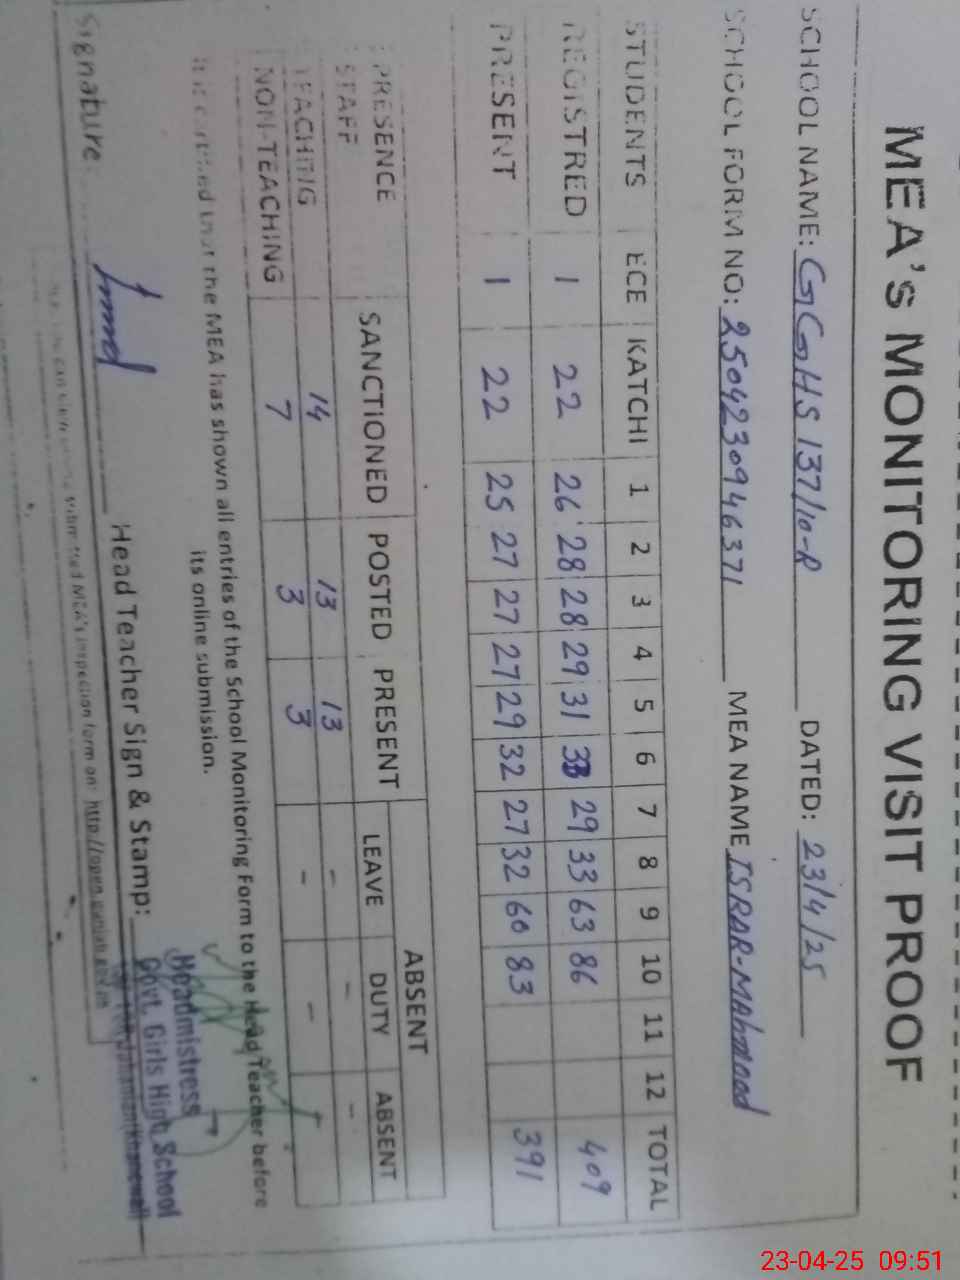 MEA's MONITORING VISIT PROOF
SCHOOL NAME: GGHS 137/10-R DATED: 23/4/25
SCHOOL FORM NO: 2504230946371 MEA NAME ISRAR-MAhmood
STUDENTS ECE KATCHI 1 2 3 4 5 6 7 8 9 10 11 12 TOTAL
REGISTRED 1 22 26 28 28 29 31 33 29 33 63 86 409
PRESENT 1 22 25 27 27 27 29 32 27 32 60 83 391
ABSENT
PRESENCE SANCTIONED POSTED PRESENT LEAVE DUTY ABSENT
STAFF
TEACHING 14 13 13 - - -
NON-TEACHING 7 3 3 - -
It is certified that the MEA has shown all entries of the School Monitoring Form to the Head Teacher before
its online submission.
Signature: Head Teacher Sign & Stamp:
Headmistress
Govt. Girls High School
submitted MEA's inspection form on: http://open.punjab.gov.pk
23-04-25 09:51